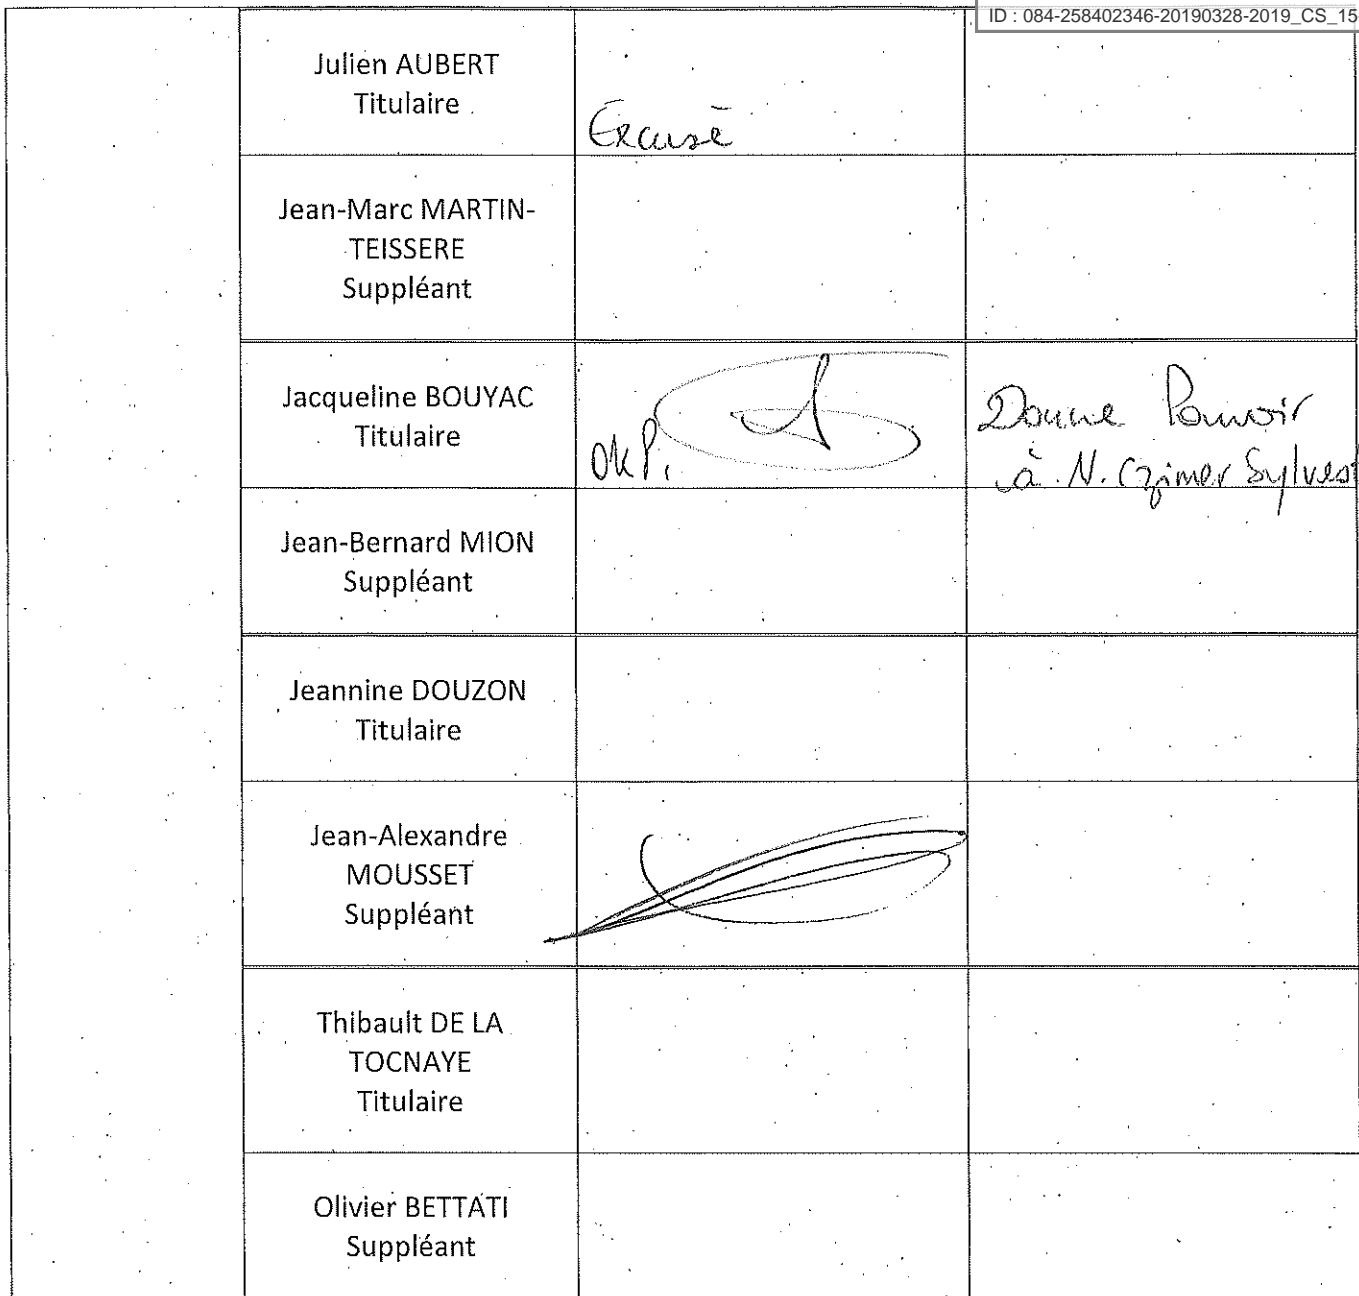 ID : 084-258402346-20190328-2019_CS_15
Julien AUBERT
Titulaire
Excusé
Jean-Marc MARTIN-
TEISSERE
Suppléant
Jacqueline BOUYAC
Titulaire
OK P.
Donne Pouvoir
à N. Czimer Sylves
Jean-Bernard MION
Suppléant
Jeannine DOUZON
Titulaire
Jean-Alexandre
MOUSSET
Suppléant
Thibault DE LA
TOCNAYE
Titulaire
Olivier BETTATI
Suppléant